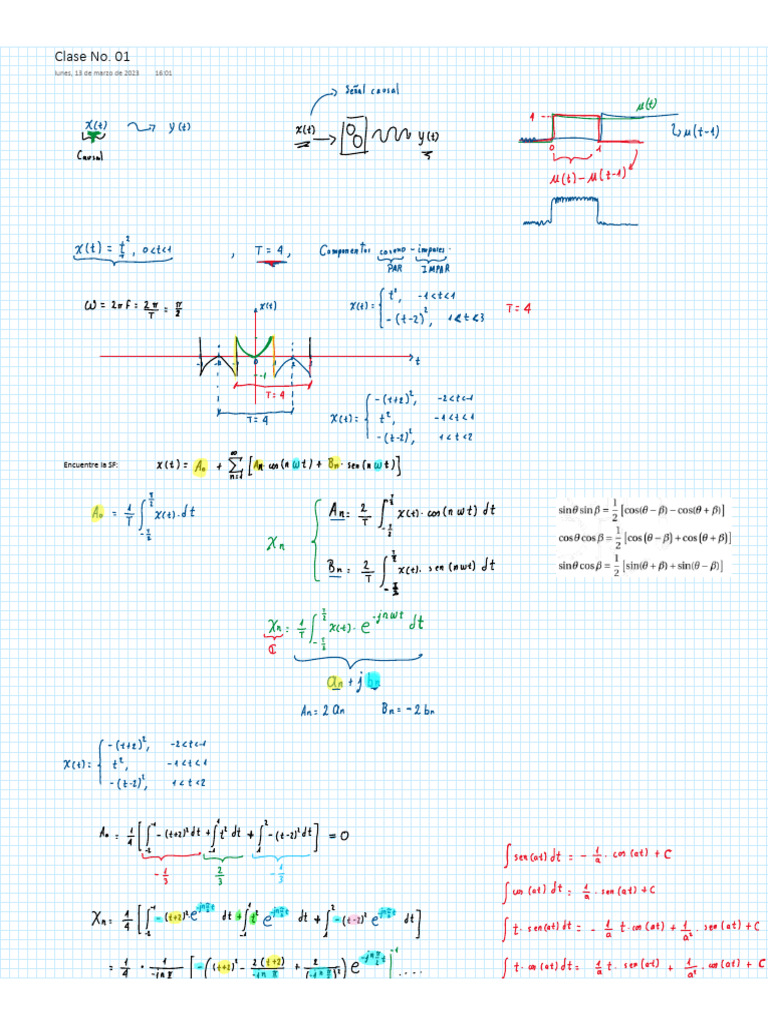 Clase No. 01
lunes, 13 de marzo de 2023 16:01
Señal causal
x(t) y(t)
Causal
x(t) → y(t)
μ(t)
1
μ(t-1)
0 1
μ(t) - μ(t-1)
x(t) = t², 0<t<1 , T = 4, Componentes coseno - impares.
PAR IMPAR
ω = 2πf = 2π/T = π/2
x(t) = { t², -1<t<1
-(t-2)², 1<t<3 T = 4
x(t)
0 1 2
t
-1
T = 4
T = 4
x(t) = { -(t+2)², -2<t<-1
t², -1<t<1
-(t-2)², 1<t<2
Encuentre la SF: x(t) = A₀ + ∑ n=1 ∞ [An · cos(nωt) + Bn · sen(nωt)]
A₀ = 1/T ∫ -T/2 T/2 x(t)·dt
Xn { An = 2/T ∫ -T/2 T/2 x(t)·cos(nωt) dt
Bn = 2/T ∫ -T/2 T/2 x(t)·sen(nωt) dt
sinθ sinβ = 1/2 [cos(θ − β) − cos(θ + β)]
cosθ cosβ = 1/2 [cos(θ − β) + cos(θ + β)]
sinθ cosβ = 1/2 [sin(θ + β) + sin(θ − β)]
Xn = 1/T ∫ -T/2 T/2 x(t)·e^(-jnωt) dt
ℂ
an + j bn
An = 2an Bn = -2bn
x(t) = { -(t+2)², -2<t<-1
t², -1<t<1
-(t-2)², 1<t<2
A₀ = 1/4 [∫ -2 -1 -(t+2)² dt + ∫ -1 1 t² dt + ∫ 1 2 -(t-2)² dt] = 0
-1/3 2/3 -1/3
∫ sen(at) dt = - 1/a · cos(at) + C
∫ cos(at) dt = 1/a · sen(at) + C
∫ t · sen(at) dt = - 1/a t·cos(at) + 1/a² · sen(at) + C
∫ t · cos(at) dt = 1/a t · sen(at) + 1/a² · cos(at) + C
Xn = 1/4 [∫ -2 -1 -(t+2)² e^(-jnπ/2 t) dt + ∫ -1 1 t² e^(-jnπ/2 t) dt + ∫ 1 2 -(t-2)² e^(-jnπ/2 t) dt]